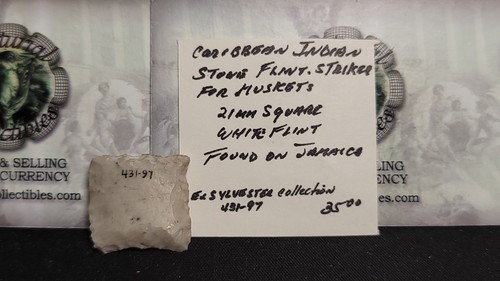 CARIBBEAN INDIAN
STONE FLINT. STRIKER
FOR MUSKETS
21mm SQUARE
WHITE FLINT
FOUND ON JAMAICA
Ex SYLVESTER collection
431-97
3500
431-97
& SELLING
CURRENCY
llectibles.com
& SELLING
ENCY
es.com